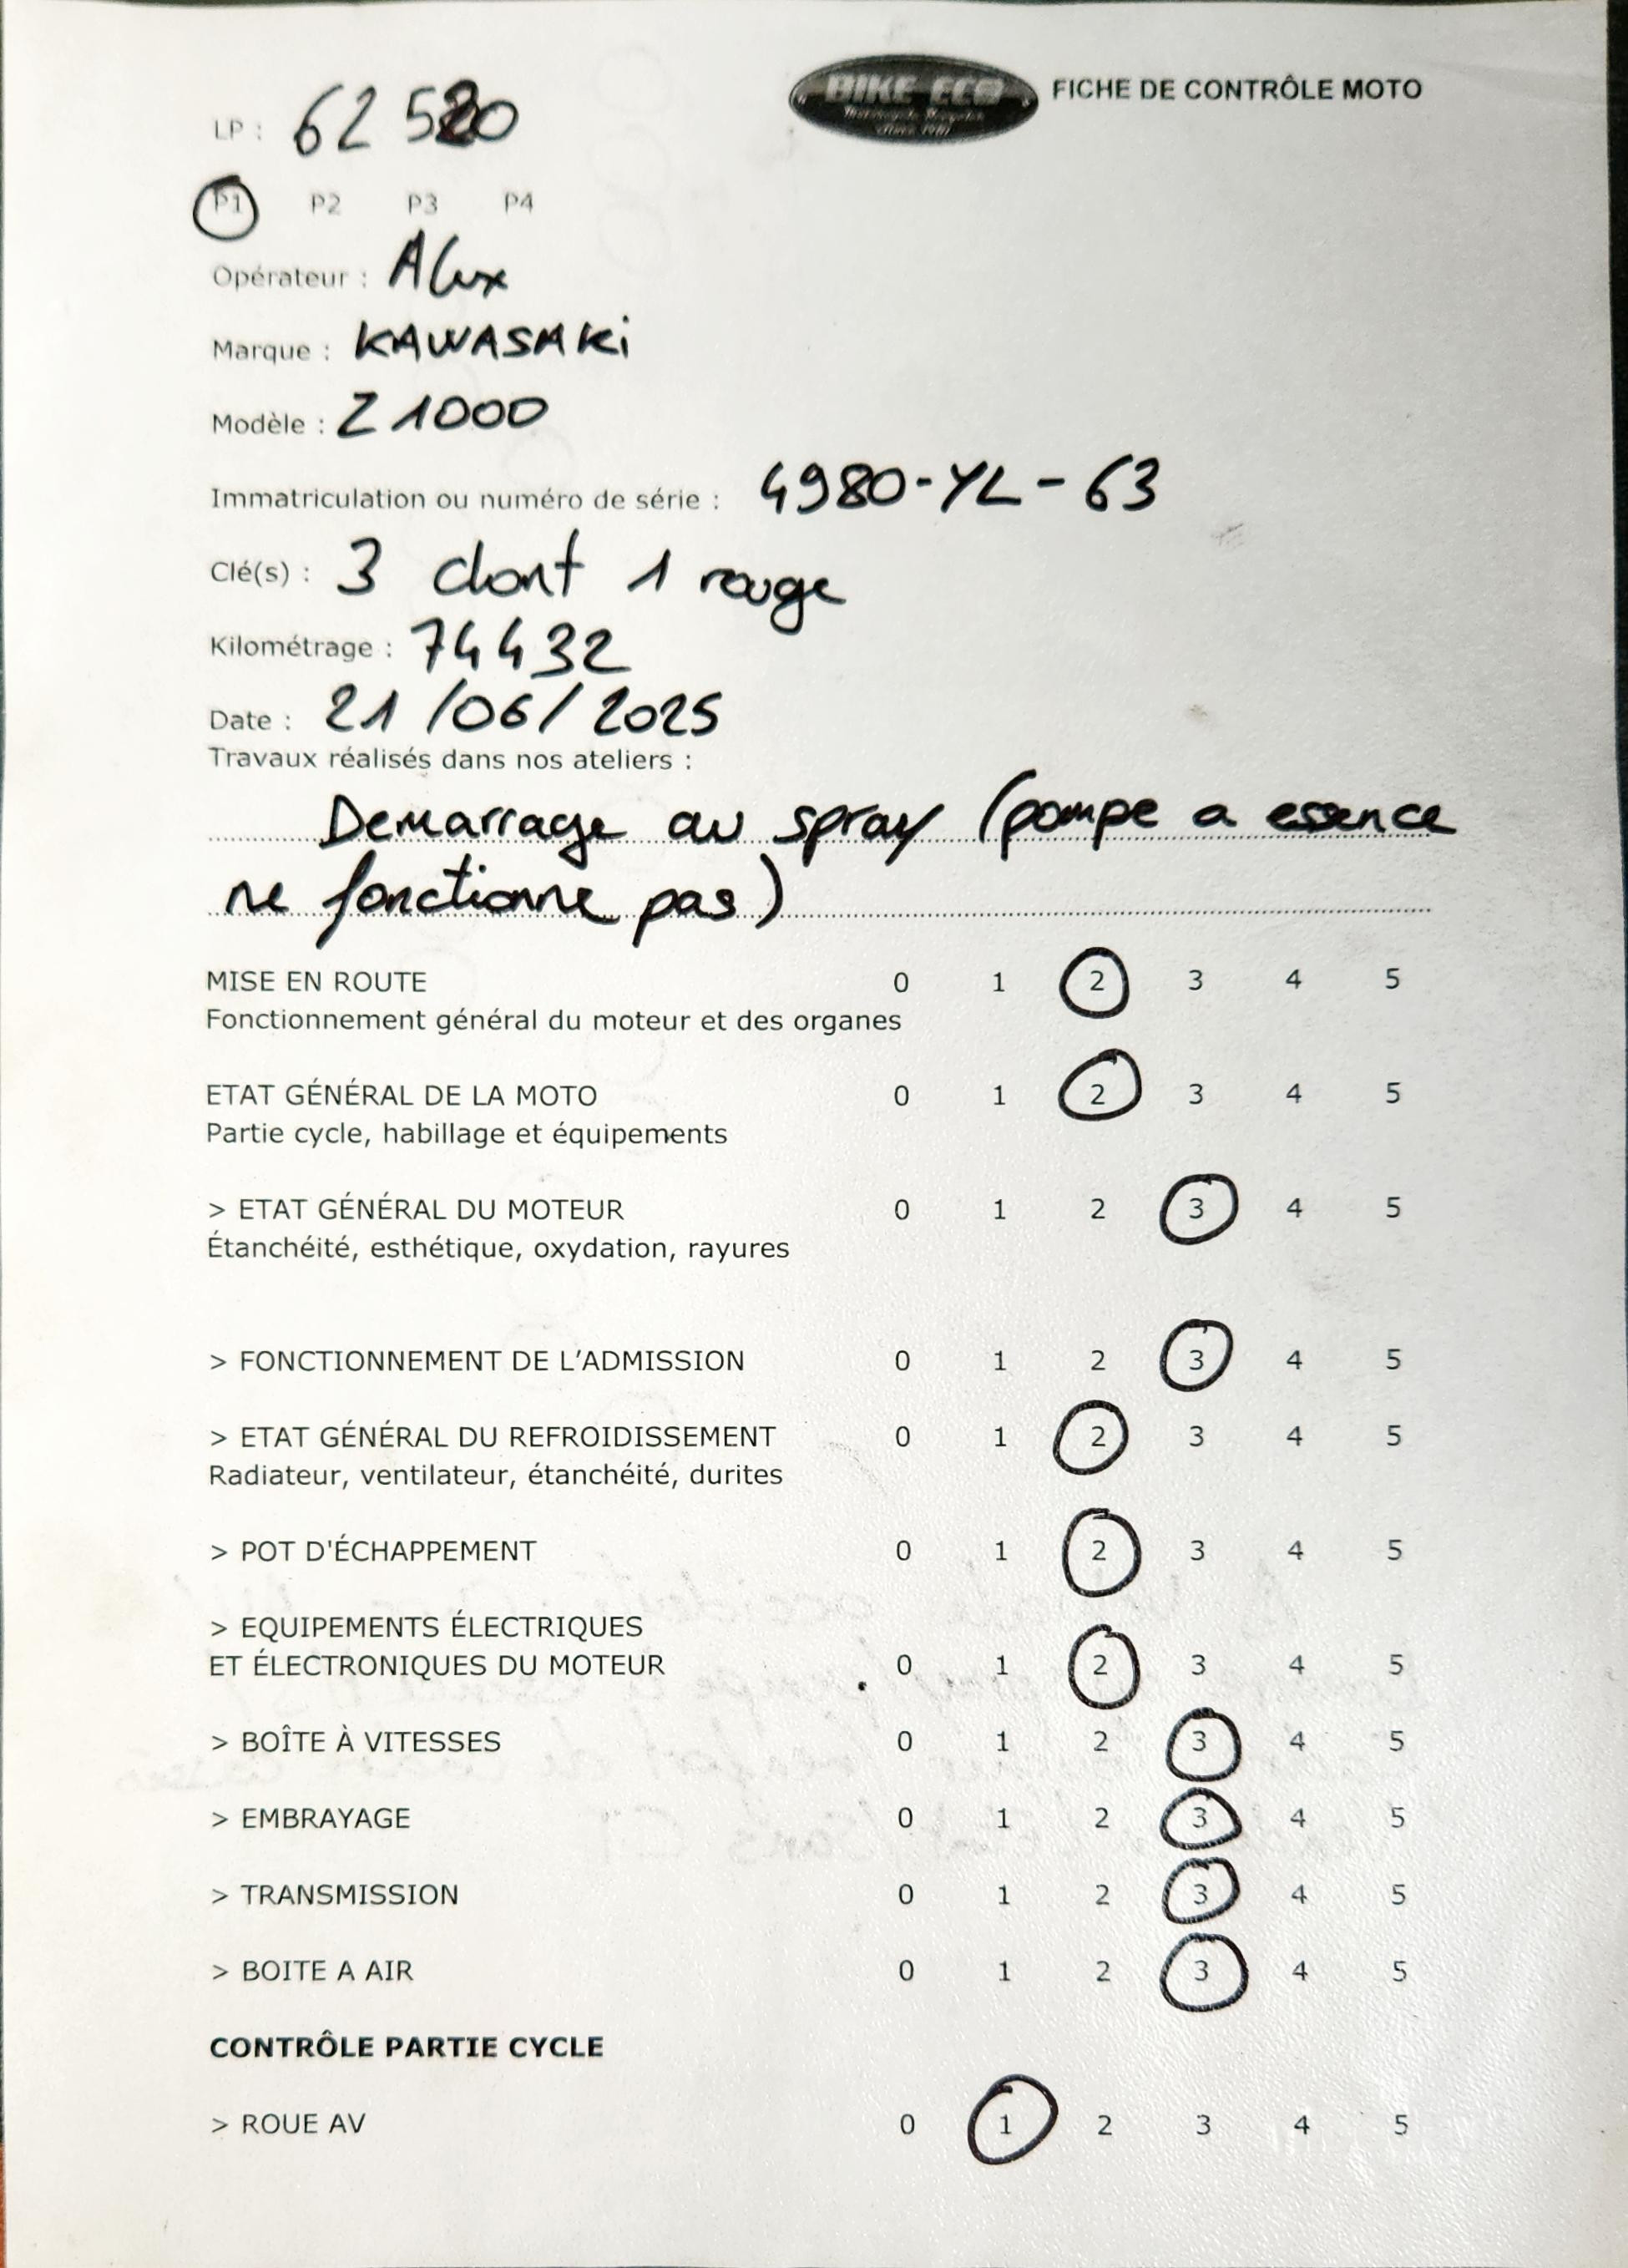 BIKE ECO
FICHE DE CONTRÔLE MOTO
LP : 62 520
P1 P2 P3 P4
Opérateur : Alex
Marque : KAWASAKi
Modèle : Z 1000
Immatriculation ou numéro de série : 4980-YL-63
Clé(s) : 3 dont 1 rouge
Kilométrage : 74432
Date : 21/06/2025
Travaux réalisés dans nos ateliers :
Demarrage au spray (pompe a essence
ne fonctionne pas)
MISE EN ROUTE 0 1 2 3 4 5
Fonctionnement général du moteur et des organes
ETAT GÉNÉRAL DE LA MOTO 0 1 2 3 4 5
Partie cycle, habillage et équipements
> ETAT GÉNÉRAL DU MOTEUR 0 1 2 3 4 5
Étanchéité, esthétique, oxydation, rayures
> FONCTIONNEMENT DE L'ADMISSION 0 1 2 3 4 5
> ETAT GÉNÉRAL DU REFROIDISSEMENT 0 1 2 3 4 5
Radiateur, ventilateur, étanchéité, durites
> POT D'ÉCHAPPEMENT 0 1 2 3 4 5
> EQUIPEMENTS ÉLECTRIQUES
ET ÉLECTRONIQUES DU MOTEUR 0 1 2 3 4 5
> BOÎTE À VITESSES 0 1 2 3 4 5
> EMBRAYAGE 0 1 2 3 4 5
> TRANSMISSION 0 1 2 3 4 5
> BOITE A AIR 0 1 2 3 4 5
CONTRÔLE PARTIE CYCLE
> ROUE AV 0 1 2 3 4 5